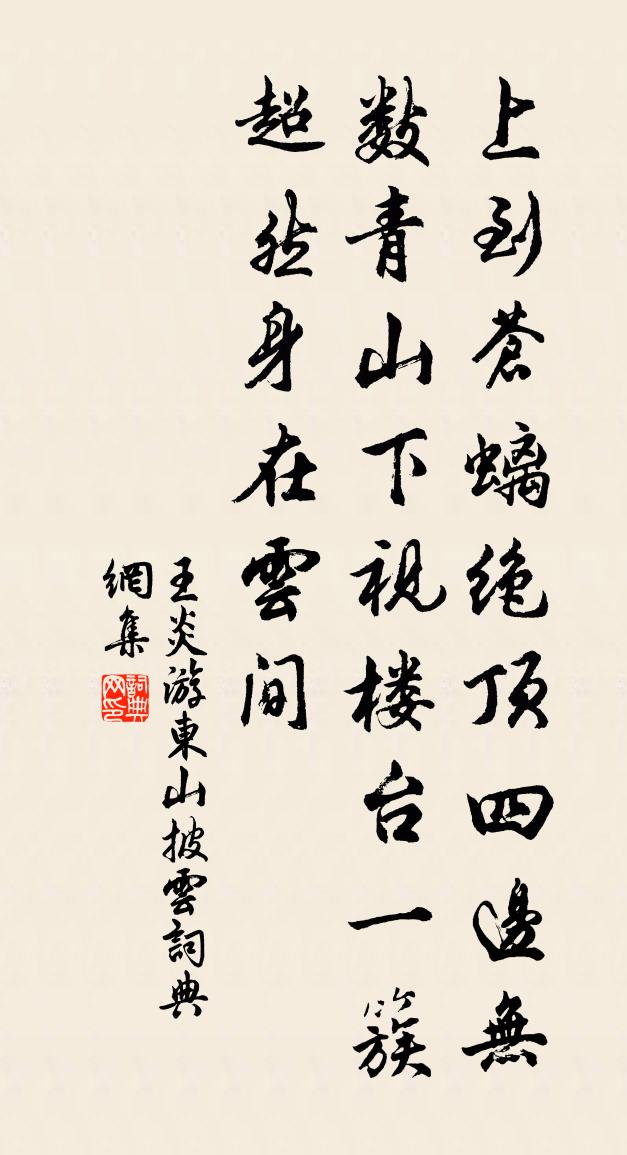 上到蒼螭绝顶四邊無
数青山下視楼台一簇
超然身在雲间
王炎游東山披雲詞典
網集
詞典网印